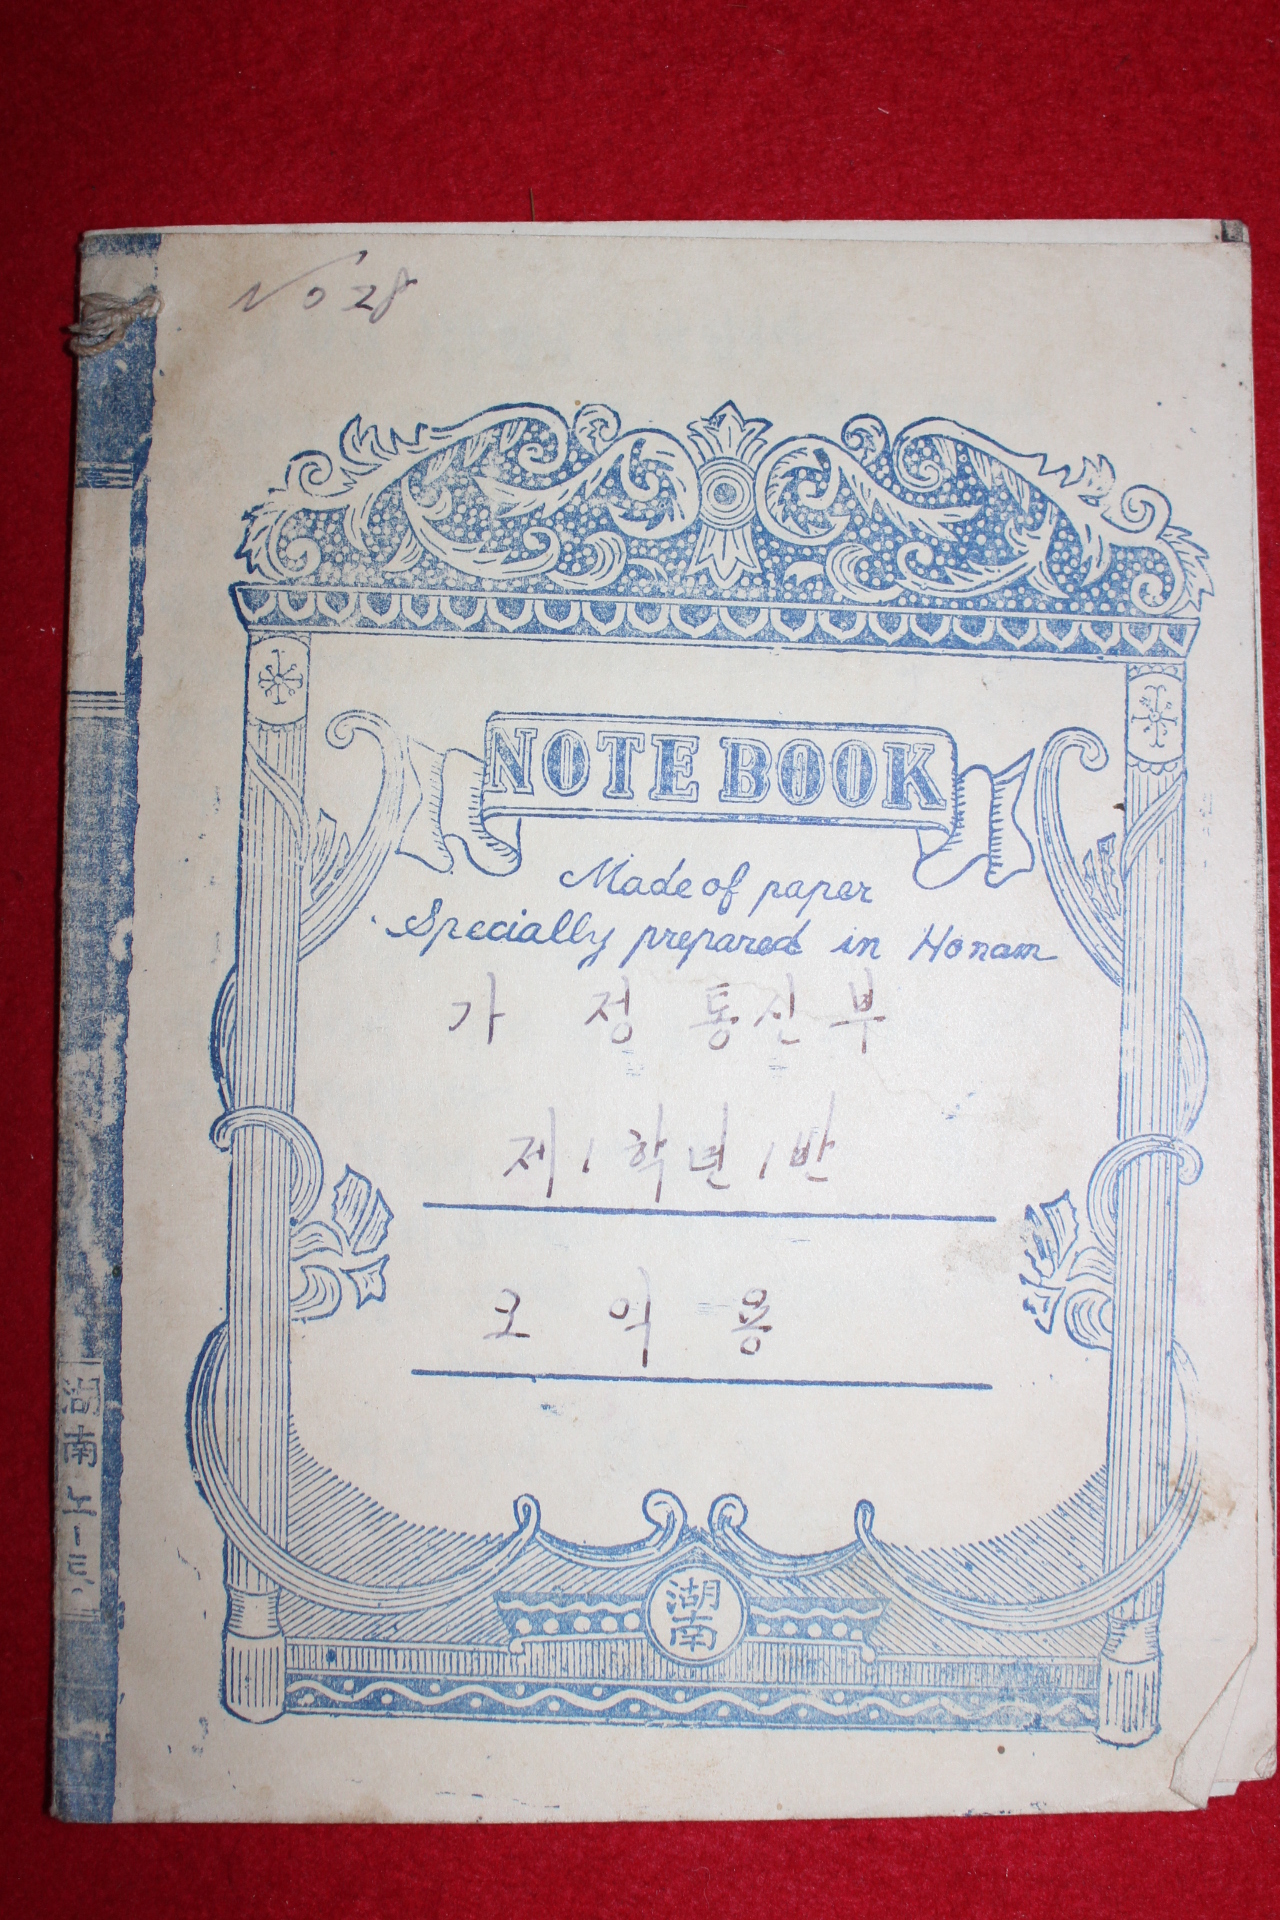 No 28
NOTE BOOK
Made of paper
Specially prepared in Honam
가 정 통신 부
제 1 학년 1 반
오 익 용
湖南
湖南 노ー트